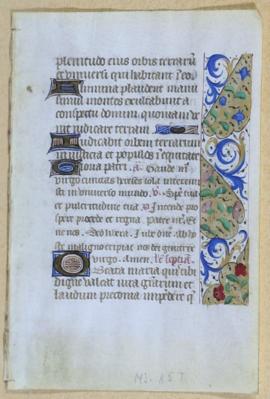 plenitudo eius orbis terrarũ
et universi qui habitant ĩ eo
flumina plaudent manu
simul montes exultabunt a
conspectu domini quoniam ve
nit iudicare terram
Iudicabit orbem terrarum
in iusticia et populos ĩ equitate
Gloria patri. a. Gaude m̃
virgo cunctas hereses sola interemi
sti in universo mundo. v. Specie tua
et pulcritudine tua R Intende pro
spere procede et regna. Pater nr̃. Et
ne nos. Sed libera. Iube dñe.
ste maligno eripiat nos dei genitrix
virgo. Amen. lectio
O Beata maria quis tibi
digne valeat iura gratiarum et
laudum preconia impendere q̃
MS. 157